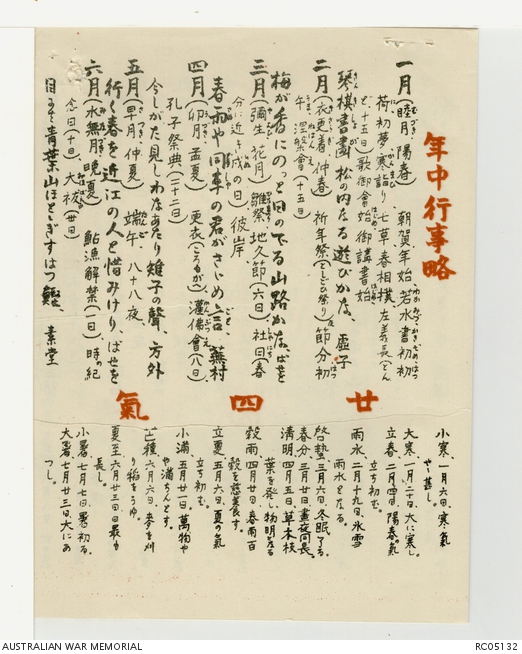 年中行事略
一月(睦月、陽春) 朝賀、年始、若水、書初、初
荷、初夢、寒詣り、七草、春相撲、左義長(どん
ど、十五日)歌御會始、御講書始
琴棋書画松の内なる遊びかな、虚子
二月(衣更着、仲春) 祈年祭(としごひ祭り)節分、初
午、涅槃會(十五日)
梅が香にのっと日のでる山路かな、ばせを
三月(彌生、花月) 雛祭、地久節(六日)、社日(春
分に近き戌の日)彼岸
春雨や同車の君がさざめ言、蕪村
四月(卯月、孟夏) 更衣(ころもがへ)、灌佛會(八日)、
孔子祭典(二十二日)
今しがた見しわなあたり雉子の聲、方外
五月(早月、仲夏) 端午、八十八夜
行く春を近江の人と惜みけり、ばせを
六月(水無月、晩夏) 鮎漁解禁(一日)、時の紀
念日(十日)、大祓(卅日)
目には青葉山ほとゝぎすはつ鰹、素堂
廿四氣
小寒、一月六日、寒氣
やゝ甚し。
大寒、一月二十日、大に寒し。
立春、二月四日、陽春の氣
立ち初む。
雨水、二月十九日、氷雪
雨水となる。
啓蟄、三月六日、冬眠了る。
春分、三月廿日、晝夜同長。
清明、四月五日、草木枝
葉を発し物明なる
穀雨、四月廿日、春雨百
穀を慈養す。
立夏、五月六日、夏の氣
立ち初む。
小滿、五月廿一日、萬物や
や滿ちんとす。
芒種、六月六日、麥を刈
り稻をうゆ。
夏至、六月廿三日、日最も
長し。
小暑、七月七日、暑初る。
大暑、七月廿三日、大にあ
つし。
AUSTRALIAN WAR MEMORIAL
RC05132